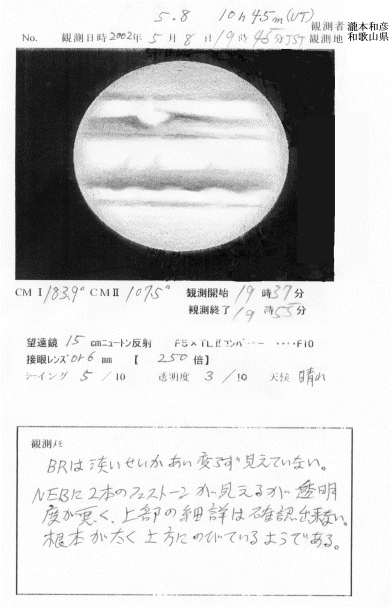 5.8 10h45m(UT)
観測者 瀧本和彦
No. 観測日時2002年5月8日19時45分JST 観測地 和歌山県
CM I 183.9° CM II 107.5° 観測開始 19時37分
観測終了 19時55分
望遠鏡 15cmニュートン反射 F10
接眼レンズ or6 mm 【 250 倍】
シーイング 5 /10 透明度 3 /10 天候 晴れ
観測メモ
BRは淡いせいかあい変らず見えていない。
NEBに2本のフェストーンが見えるが透明
度が悪く、上部の細詳は確認出来ない。
根本が太く上方にのびているようである。